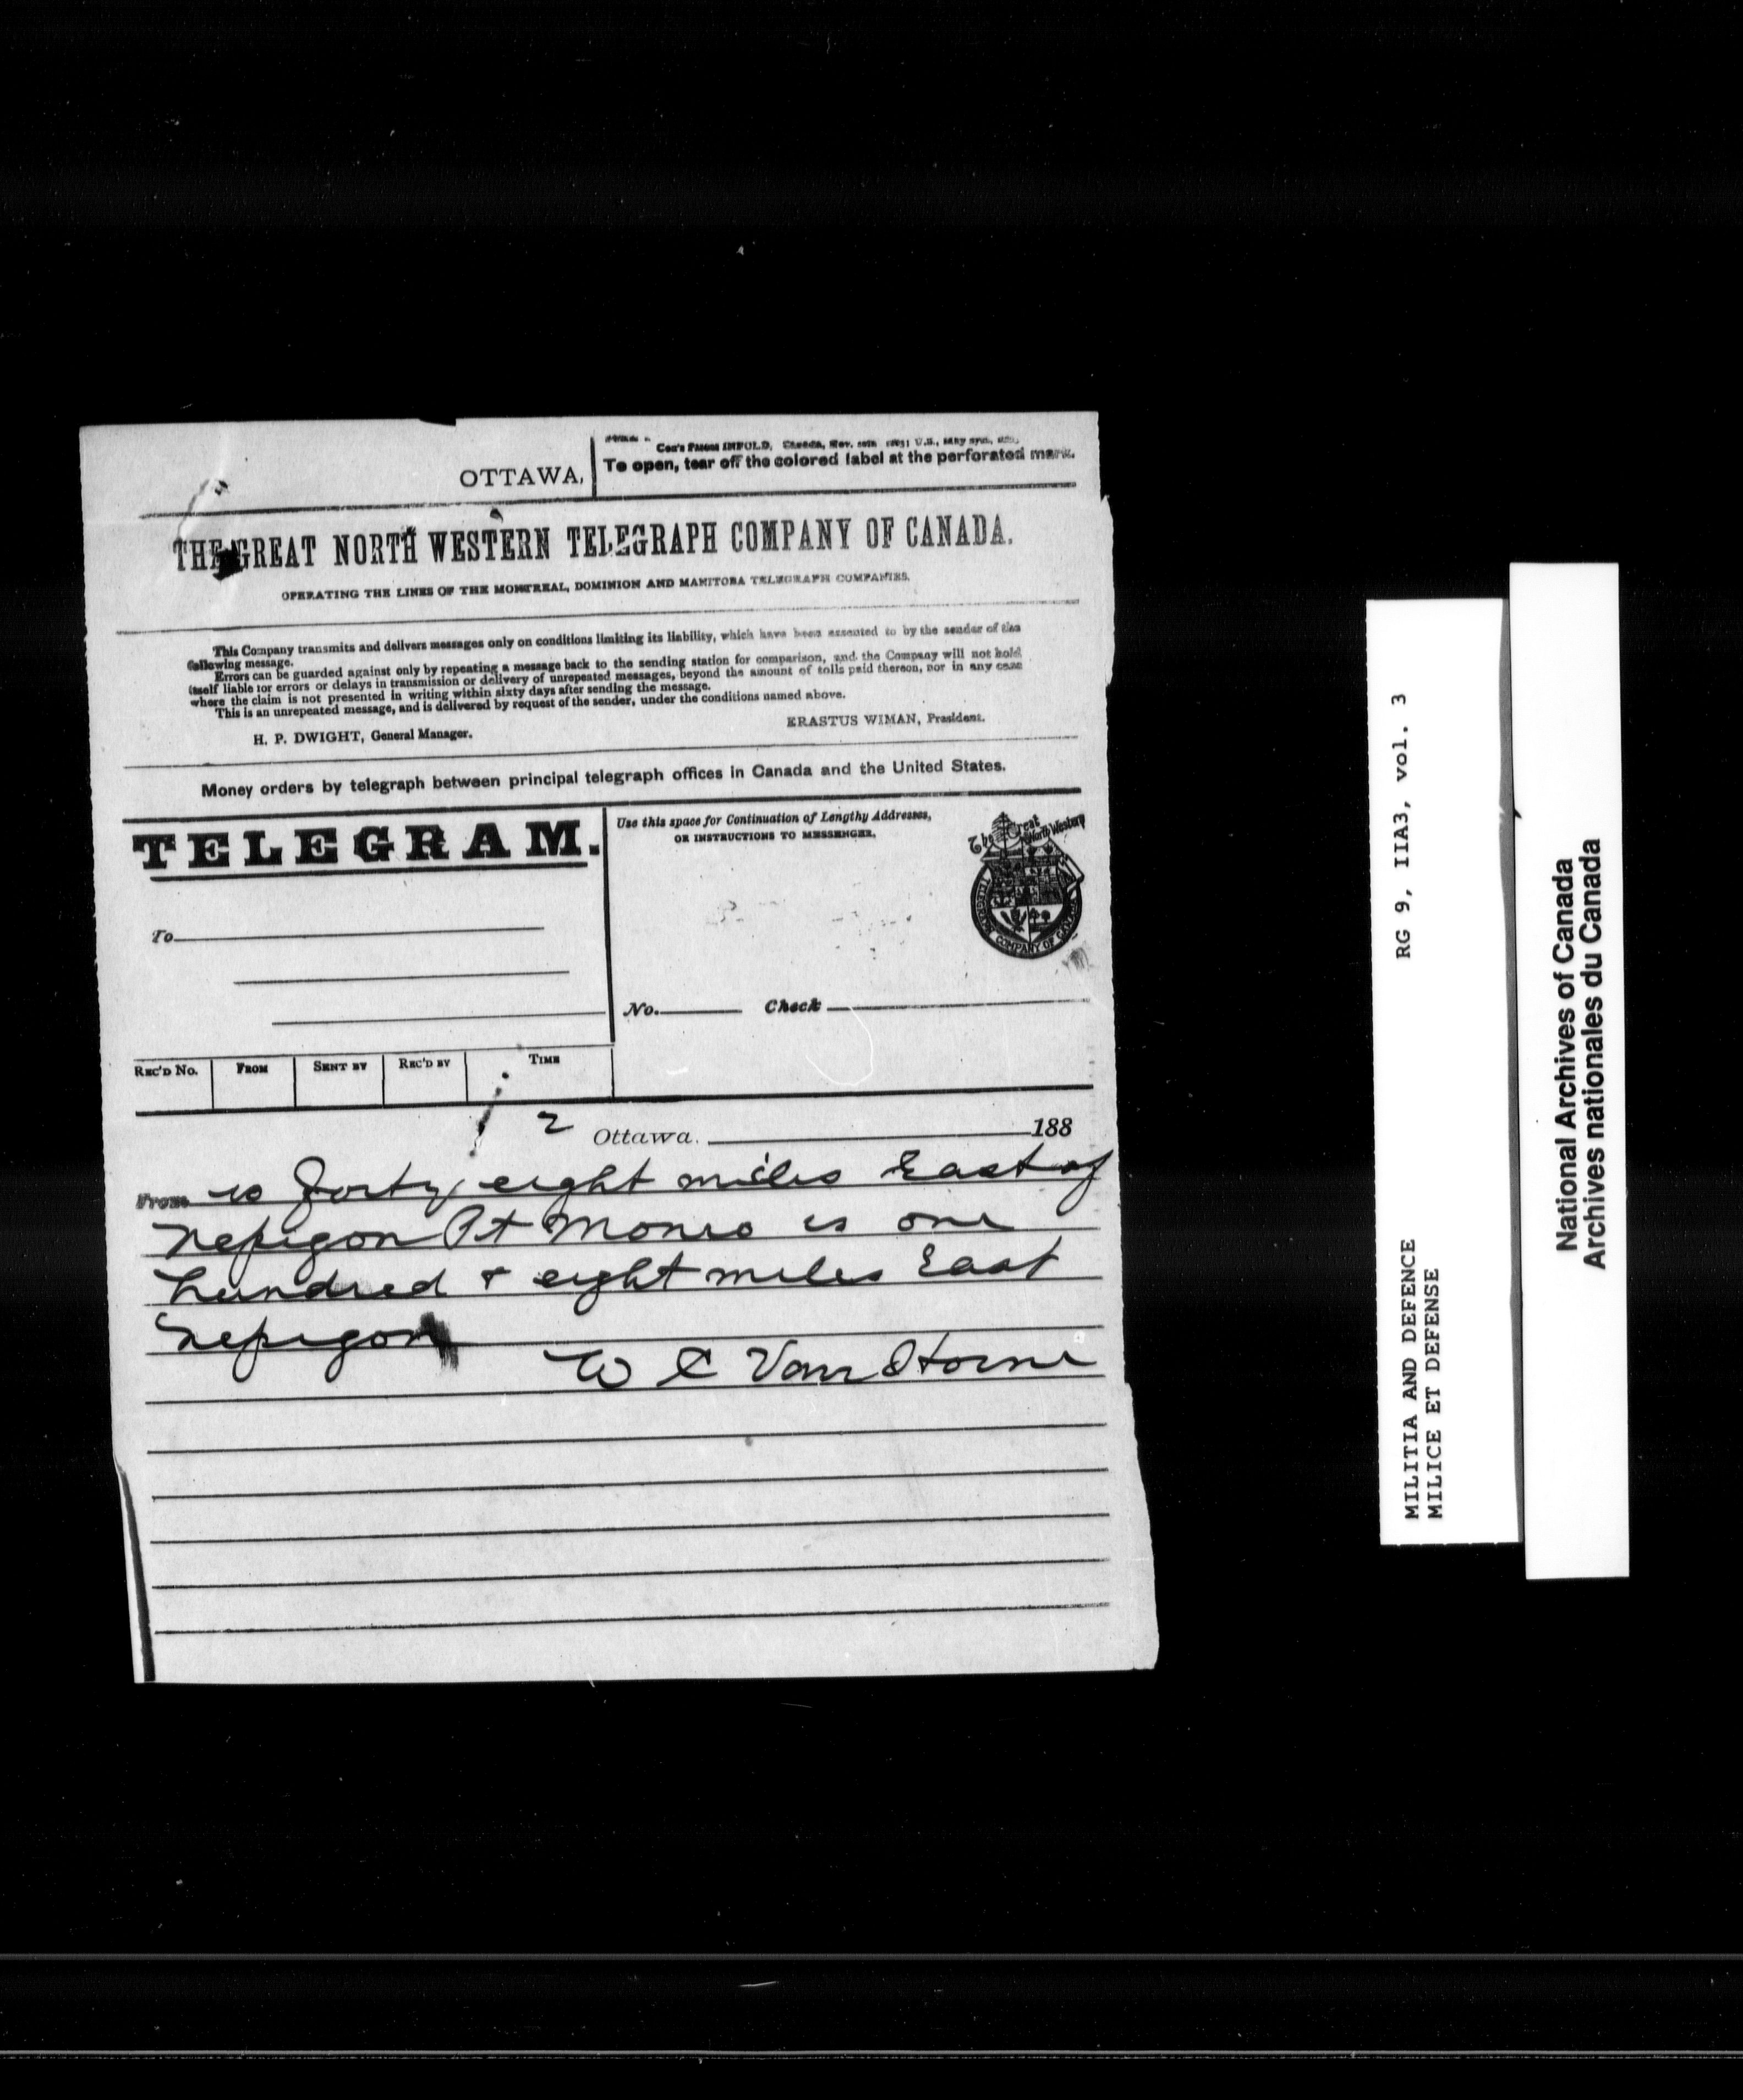 OTTAWA,
To open, tear off the colored label at the perforated mark.
THE GREAT NORTH WESTERN TELEGRAPH COMPANY OF CANADA.
OPERATING THE LINES OF THE MONTREAL, DOMINION AND MANITOBA TELEGRAPH COMPANIES.
This Company transmits and delivers messages only on conditions limiting its liability, which have been assented to by the sender of the
following message.
Errors can be guarded against only by repeating a message back to the sending station for comparison, and the Company will not hold
itself liable for errors or delays in transmission or delivery of unrepeated messages, beyond the amount of tolls paid thereon, nor in any case
where the claim is not presented in writing within sixty days after sending the message.
This is an unrepeated message, and is delivered by request of the sender, under the conditions named above.
ERASTUS WIMAN, President.
H. P. DWIGHT, General Manager.
Money orders by telegraph between principal telegraph offices in Canada and the United States.
TELEGRAM.
Use this space for Continuation of Lengthy Addresses,
OR INSTRUCTIONS TO MESSENGER.
The Great
North Western
TELEGRAPH COMPANY OF CANADA
To
No. Check
REC'D NO. FROM SENT BY REC'D BY TIME
2 Ottawa. 188
From is forty eight miles East of
Nepigon Pt Monro is one
hundred & eight miles East
Nepigon
W C Van Horne
RG 9, IIA3, vol. 3
MILITIA AND DEFENCE
MILICE ET DEFENSE
National Archives of Canada
Archives nationales du Canada